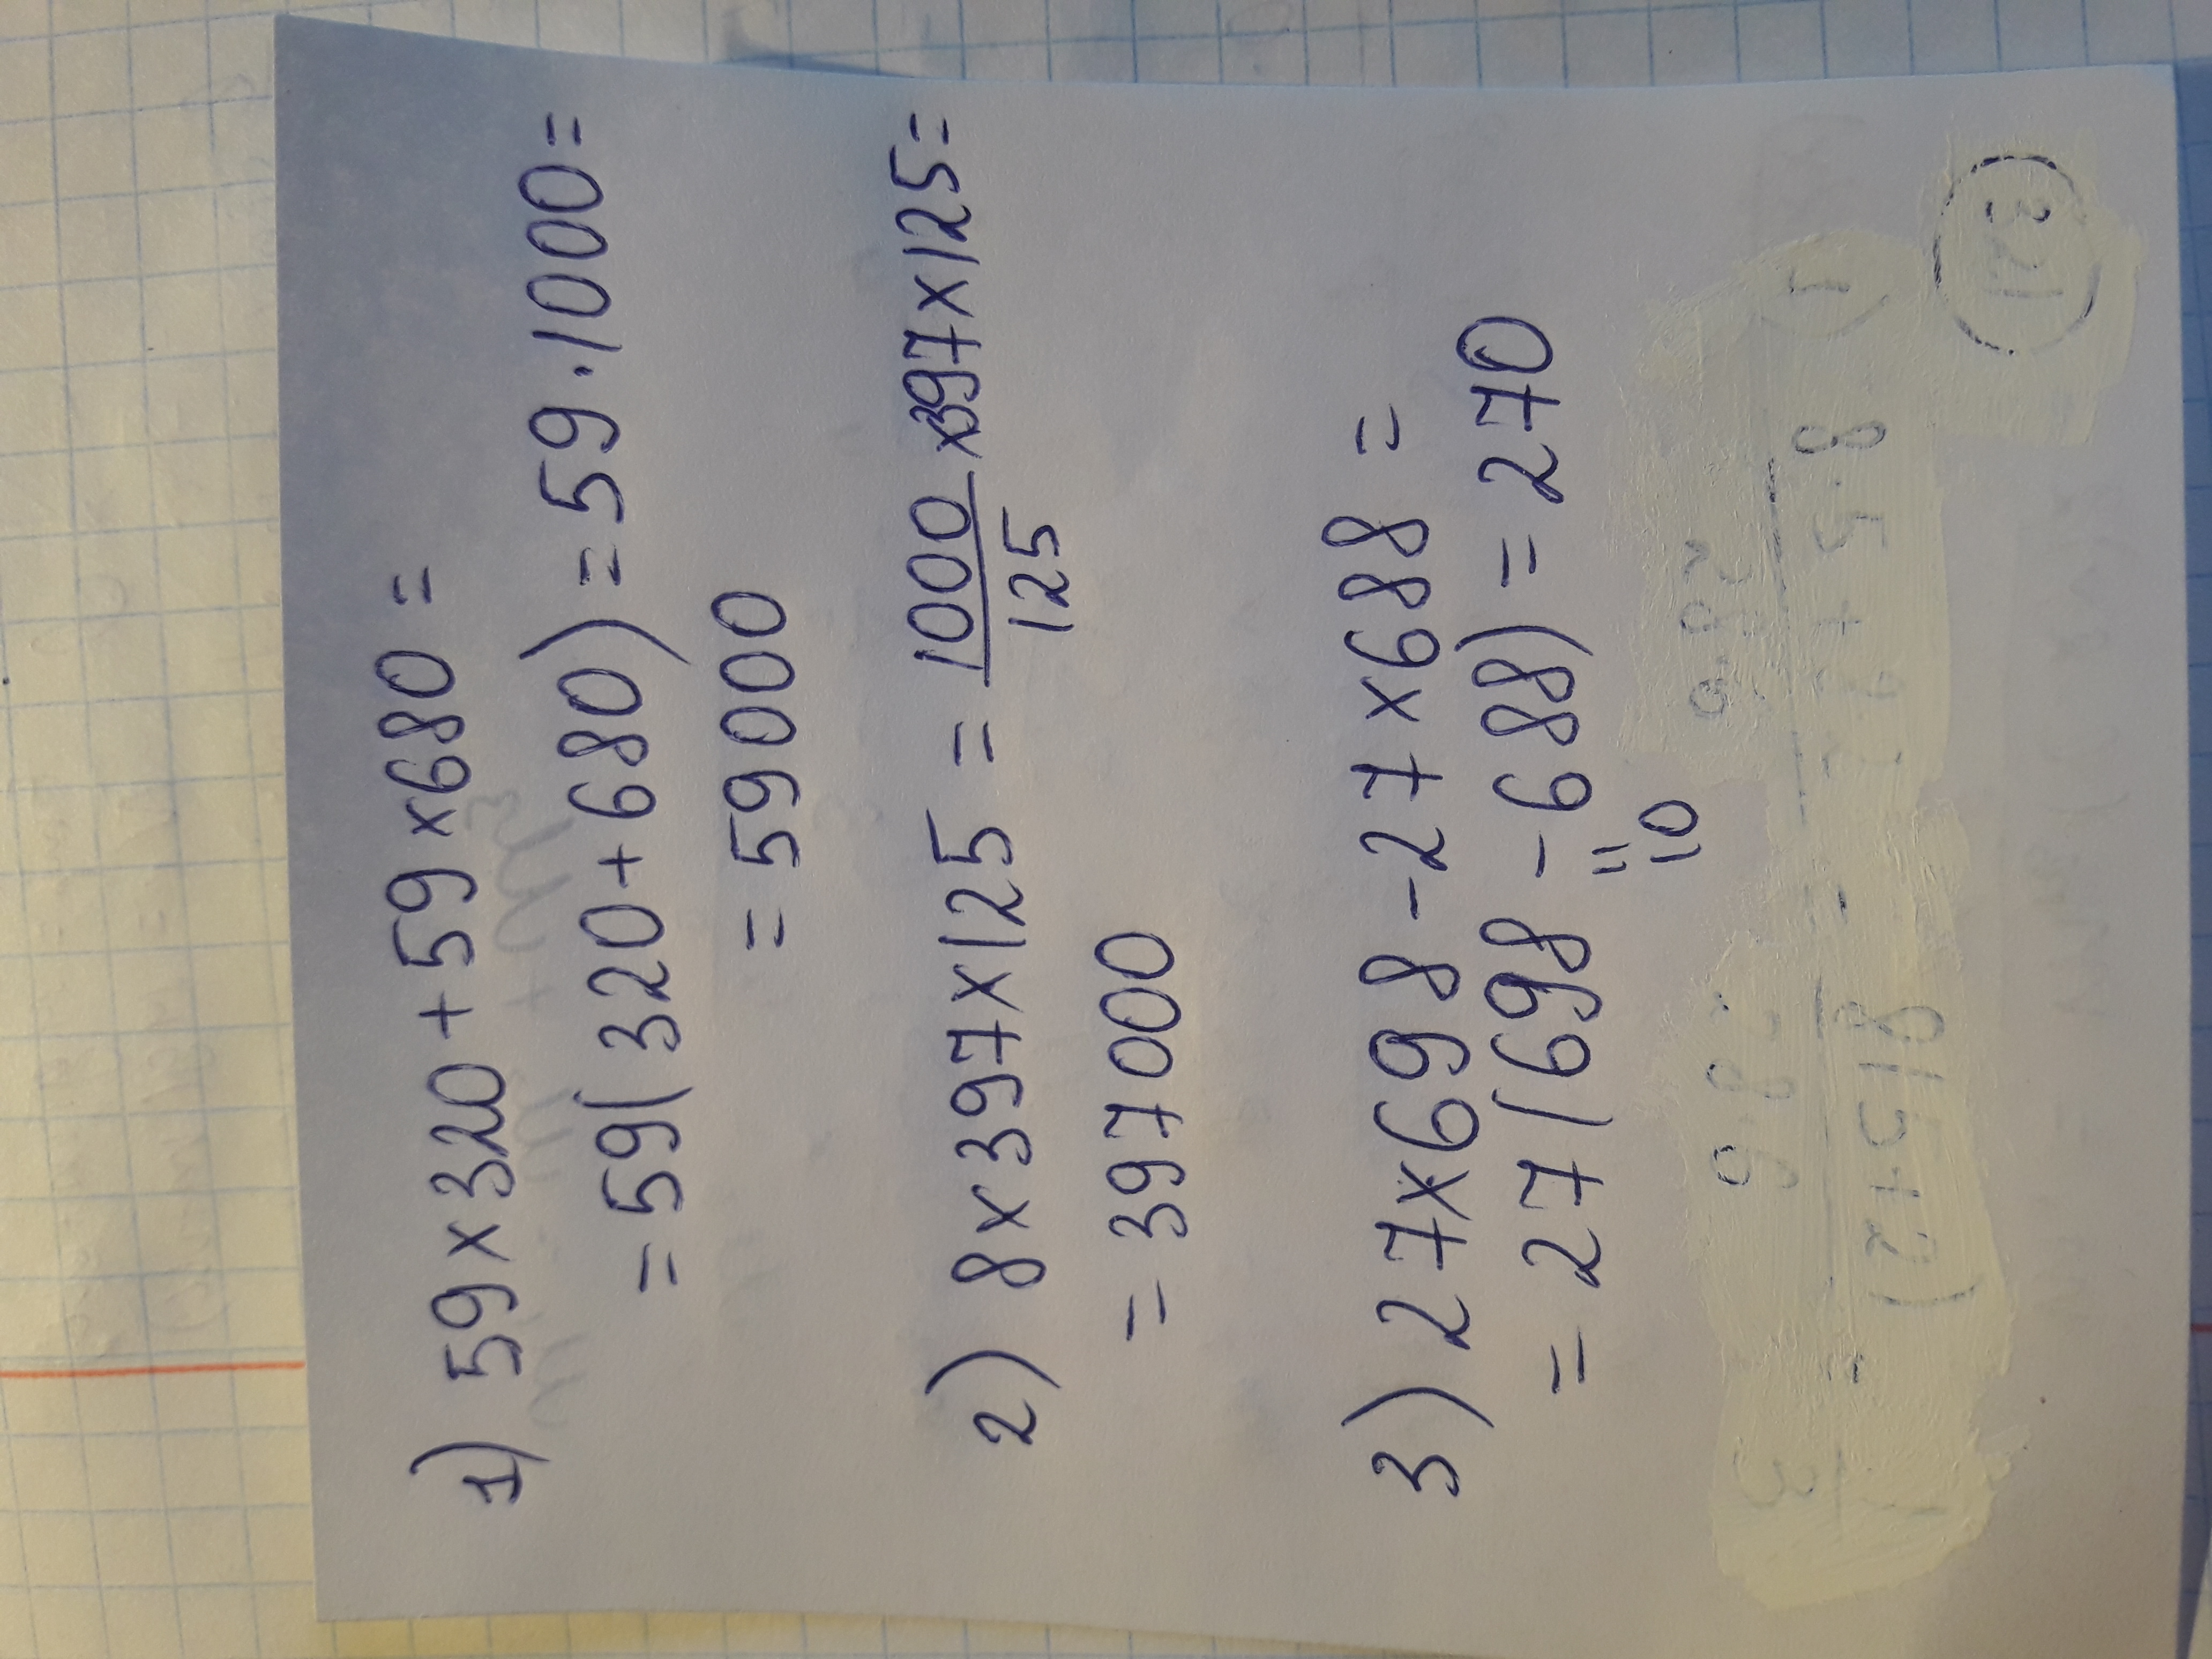 1) 59 x 320 + 59 x 680 =
= 59(320 + 680) = 59 · 1000 =
= 59000
2) 8 x 397 x 125 = 1000/125 x 397 x 125 =
= 397000
3) 27 x 698 - 27 x 688 =
= 27(698 - 688) = 270
"
10
321
1)
8(5+2)